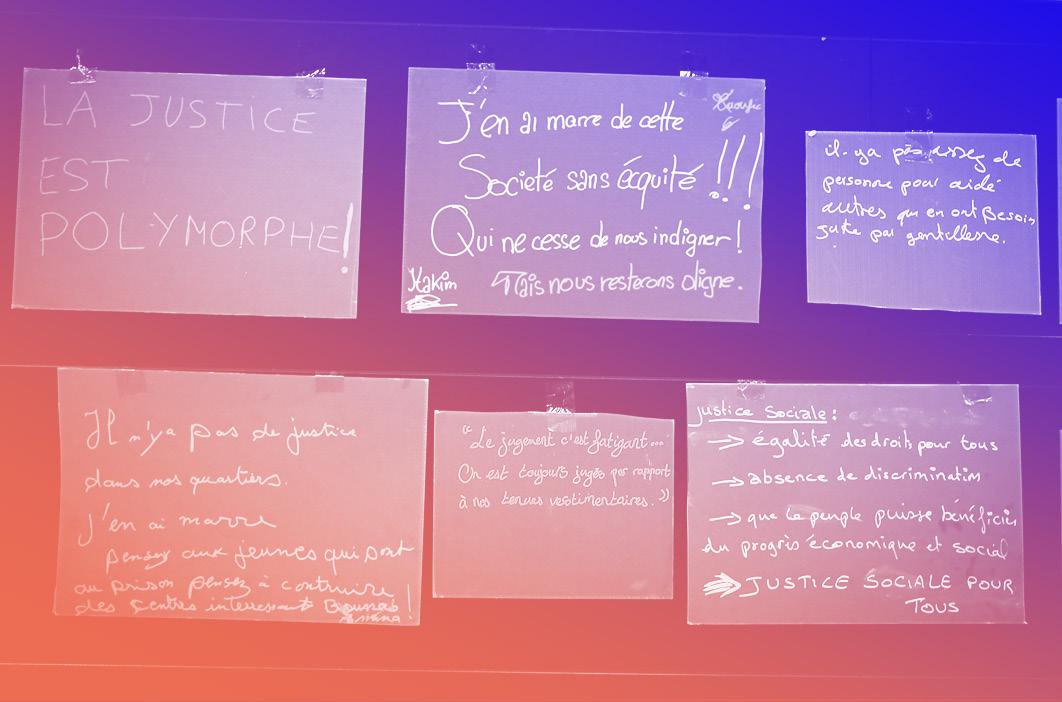 LA JUSTICE
EST
POLYMORPHE!
J'en ai marre de cette
Societé sans écquité !!!
Qui ne cesse de nous indigner!
Hakim
Mais nous resterons digne.
il ya pas assez de
personne pour aidé
autres qui en ont Besoin,
juste par gentillesse.
Il n'ya pas de justice
dans nos quartiers.
J'en ai marre
pensez aux jeunes qui sont
au prison pensez à construire
des centres interessant
"Le jugement c'est fatigant...
On est toujours jugés par rapport
à nos tenues vestimentaires. »
Justice Sociale :
→ égalité des droits pour tous
→ absence de discrimination
→ que le peuple puisse bénéficier
du progrès économique et social
⇒ JUSTICE SOCIALE POUR
TOUS